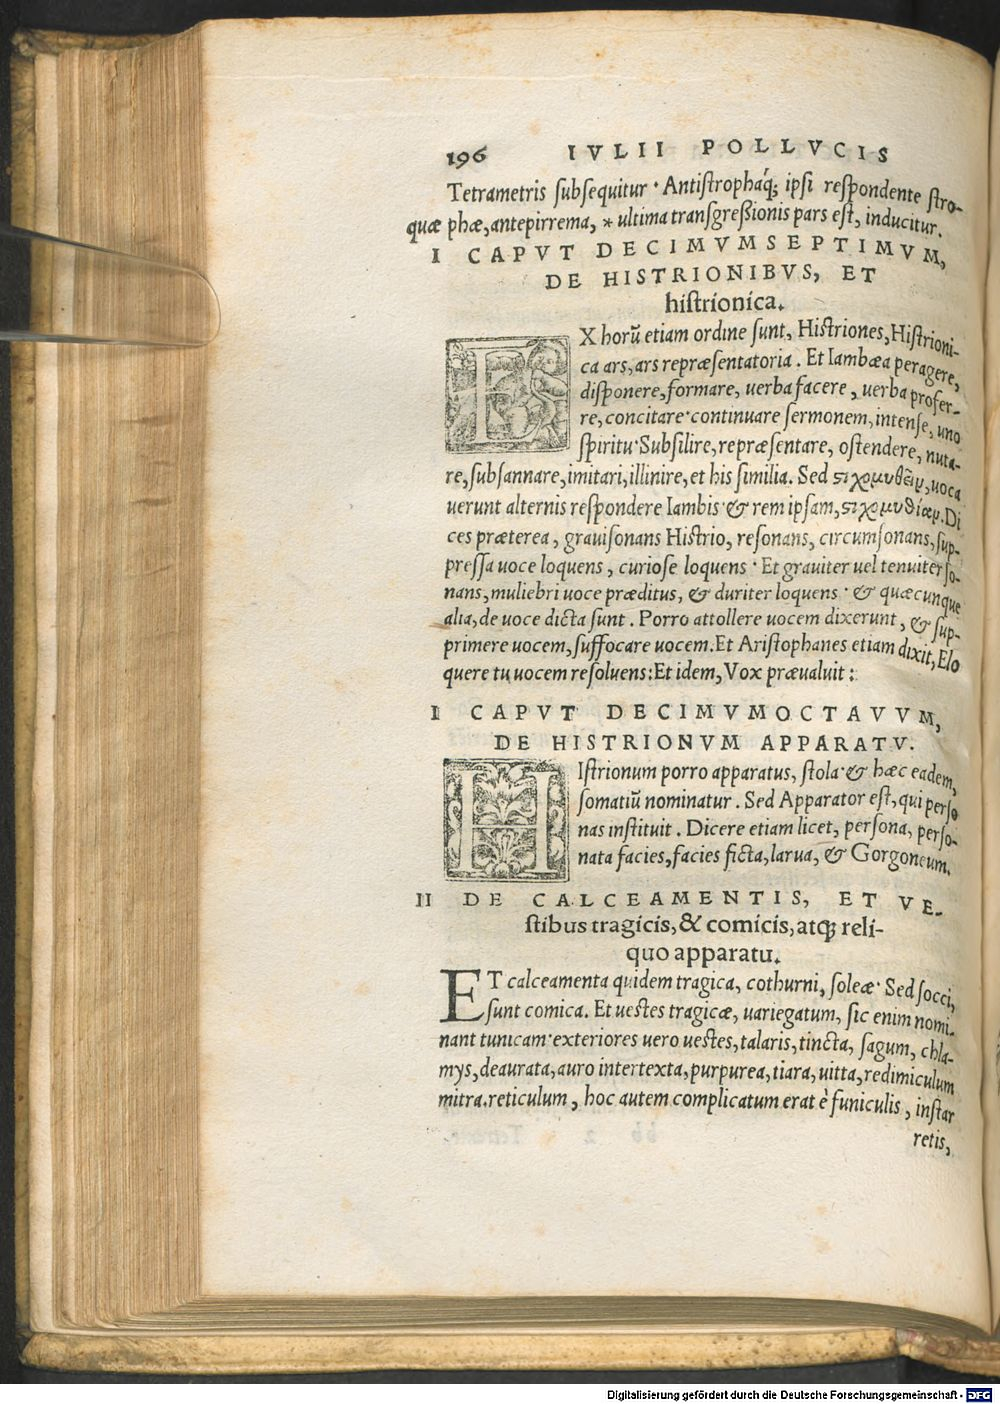 196 IVLII POLLVCIS
Tetrametris subsequitur · Antistrophaq́; ipsi respondente stro-
quæ phæ, antepirrema, * ultima transgreßionis pars est, inducitur.
I CAPVT DECIMVMSEPTIMVM,
DE HISTRIONIBVS, ET
histrionica.
EX horũ etiam ordine sunt, Histriones, Histrioni-
ca ars, ars repræsentatoria. Et Iambæa peragere,
disponere, formare, uerba facere, uerba profer-
re, concitare· continuare sermonem, intense, uno
spiritu· Subsilire, repræsentare, ostendere, nuta-
re, subsannare, imitari, illinire, et his similia. Sed ςιχομυθεῖν, uoca
uerunt alternis respondere Iambis· & rem ipsam, ςιχομυθίαν. Di
ces præterea, grauisonans Histrio, resonans, circumsonans, sup-
pressa uoce loquens, curiose loquens · Et grauiter uel tenuiter so-
nans, muliebri uoce præditus, & duriter loquens · & quæcunque
alia, de uoce dicta sunt. Porro attollere uocem dixerunt, & sup-
primere uocem, suffocare uocem. Et Aristophanes etiam dixit, Elo
quere tu uocem resoluens: Et idem, Vox præualuit:
I CAPVT DECIMVMOCTAVVM,
DE HISTRIONVM APPARATV.
HIstrionum porro apparatus, stola· & hæc eadem,
somatiũ nominatur. Sed Apparator est, qui perso
nas instituit. Dicere etiam licet, persona, perso-
nata facies, facies ficta, larua, & Gorgoneum.
II DE CALCEAMENTIS, ET VE-
stibus tragicis, & comicis, atq; reli-
quo apparatu.
ET calceamenta quidem tragica, cothurni, soleæ· Sed socci,
sunt comica. Et uestes tragicæ, uariegatum, sic enim nomi-
nant tunicam· exteriores uero uestes, talaris, tincta, sagum, chla-
mys, deaurata, auro intertexta, purpurea, tiara, uitta, redimiculum
mitra. reticulum, hoc autem complicatum erat è funiculis, instar
retis,
Digitalisierung gefördert durch die Deutsche Forschungsgemeinschaft - DFG